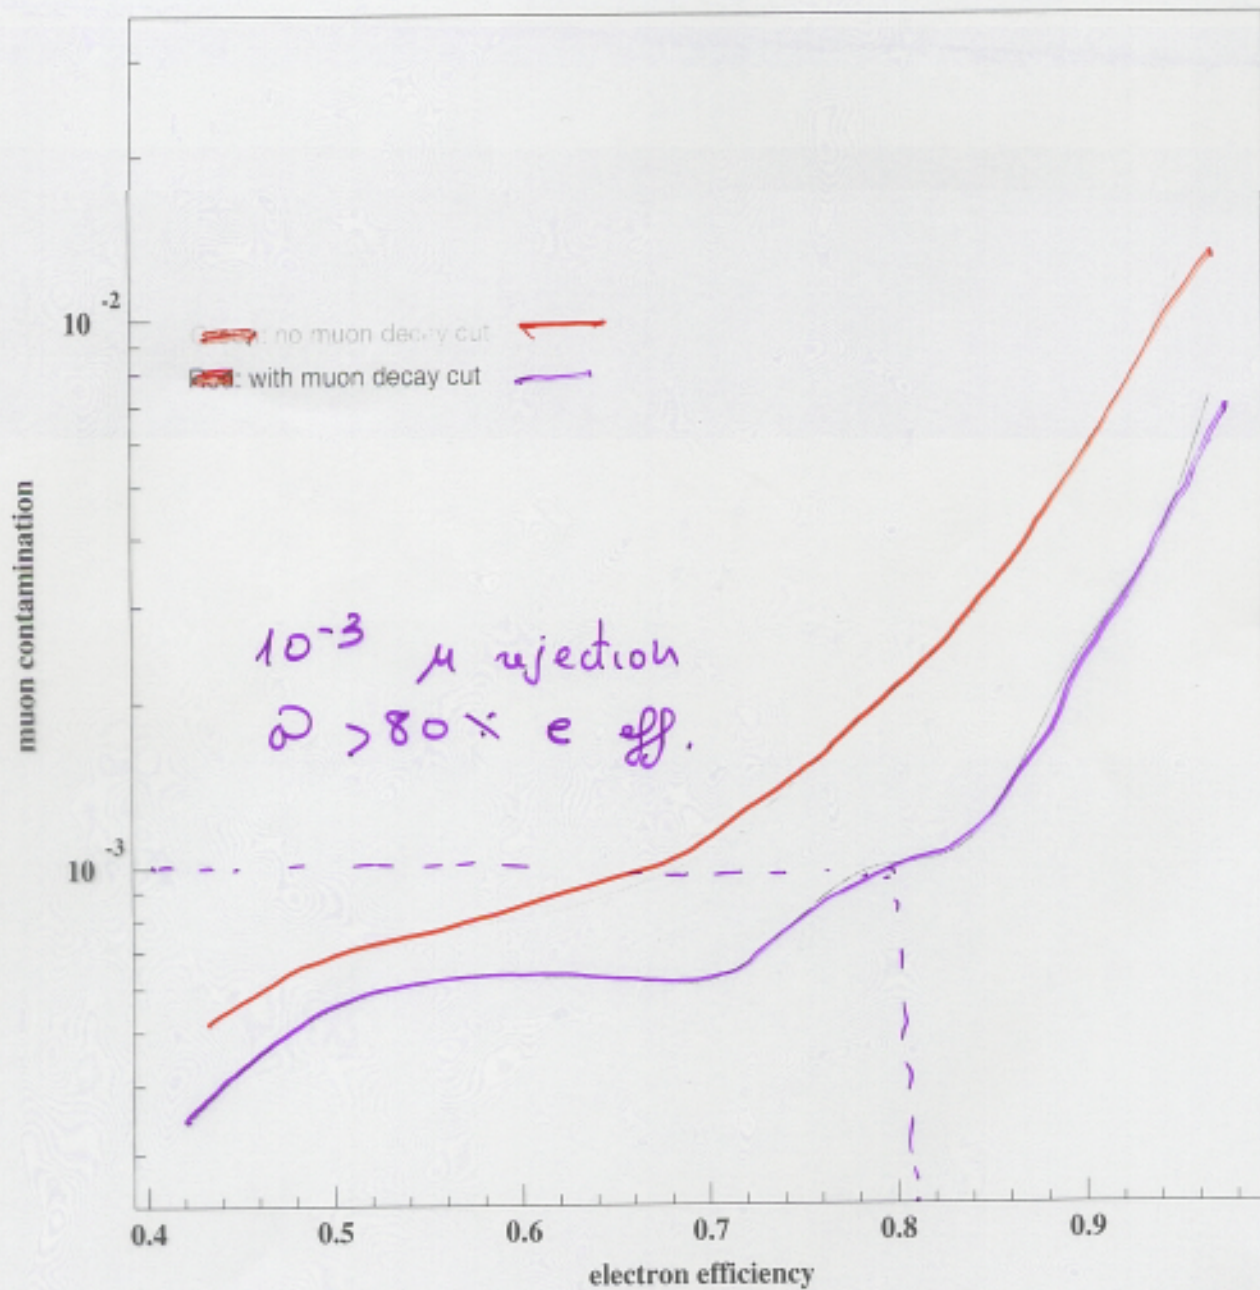 10 -2
: no muon decay cut
: with muon decay cut
muon contamination
10⁻³ μ rejection
@ >80% e eff.
10 -3
0.4 0.5 0.6 0.7 0.8 0.9
electron efficiency